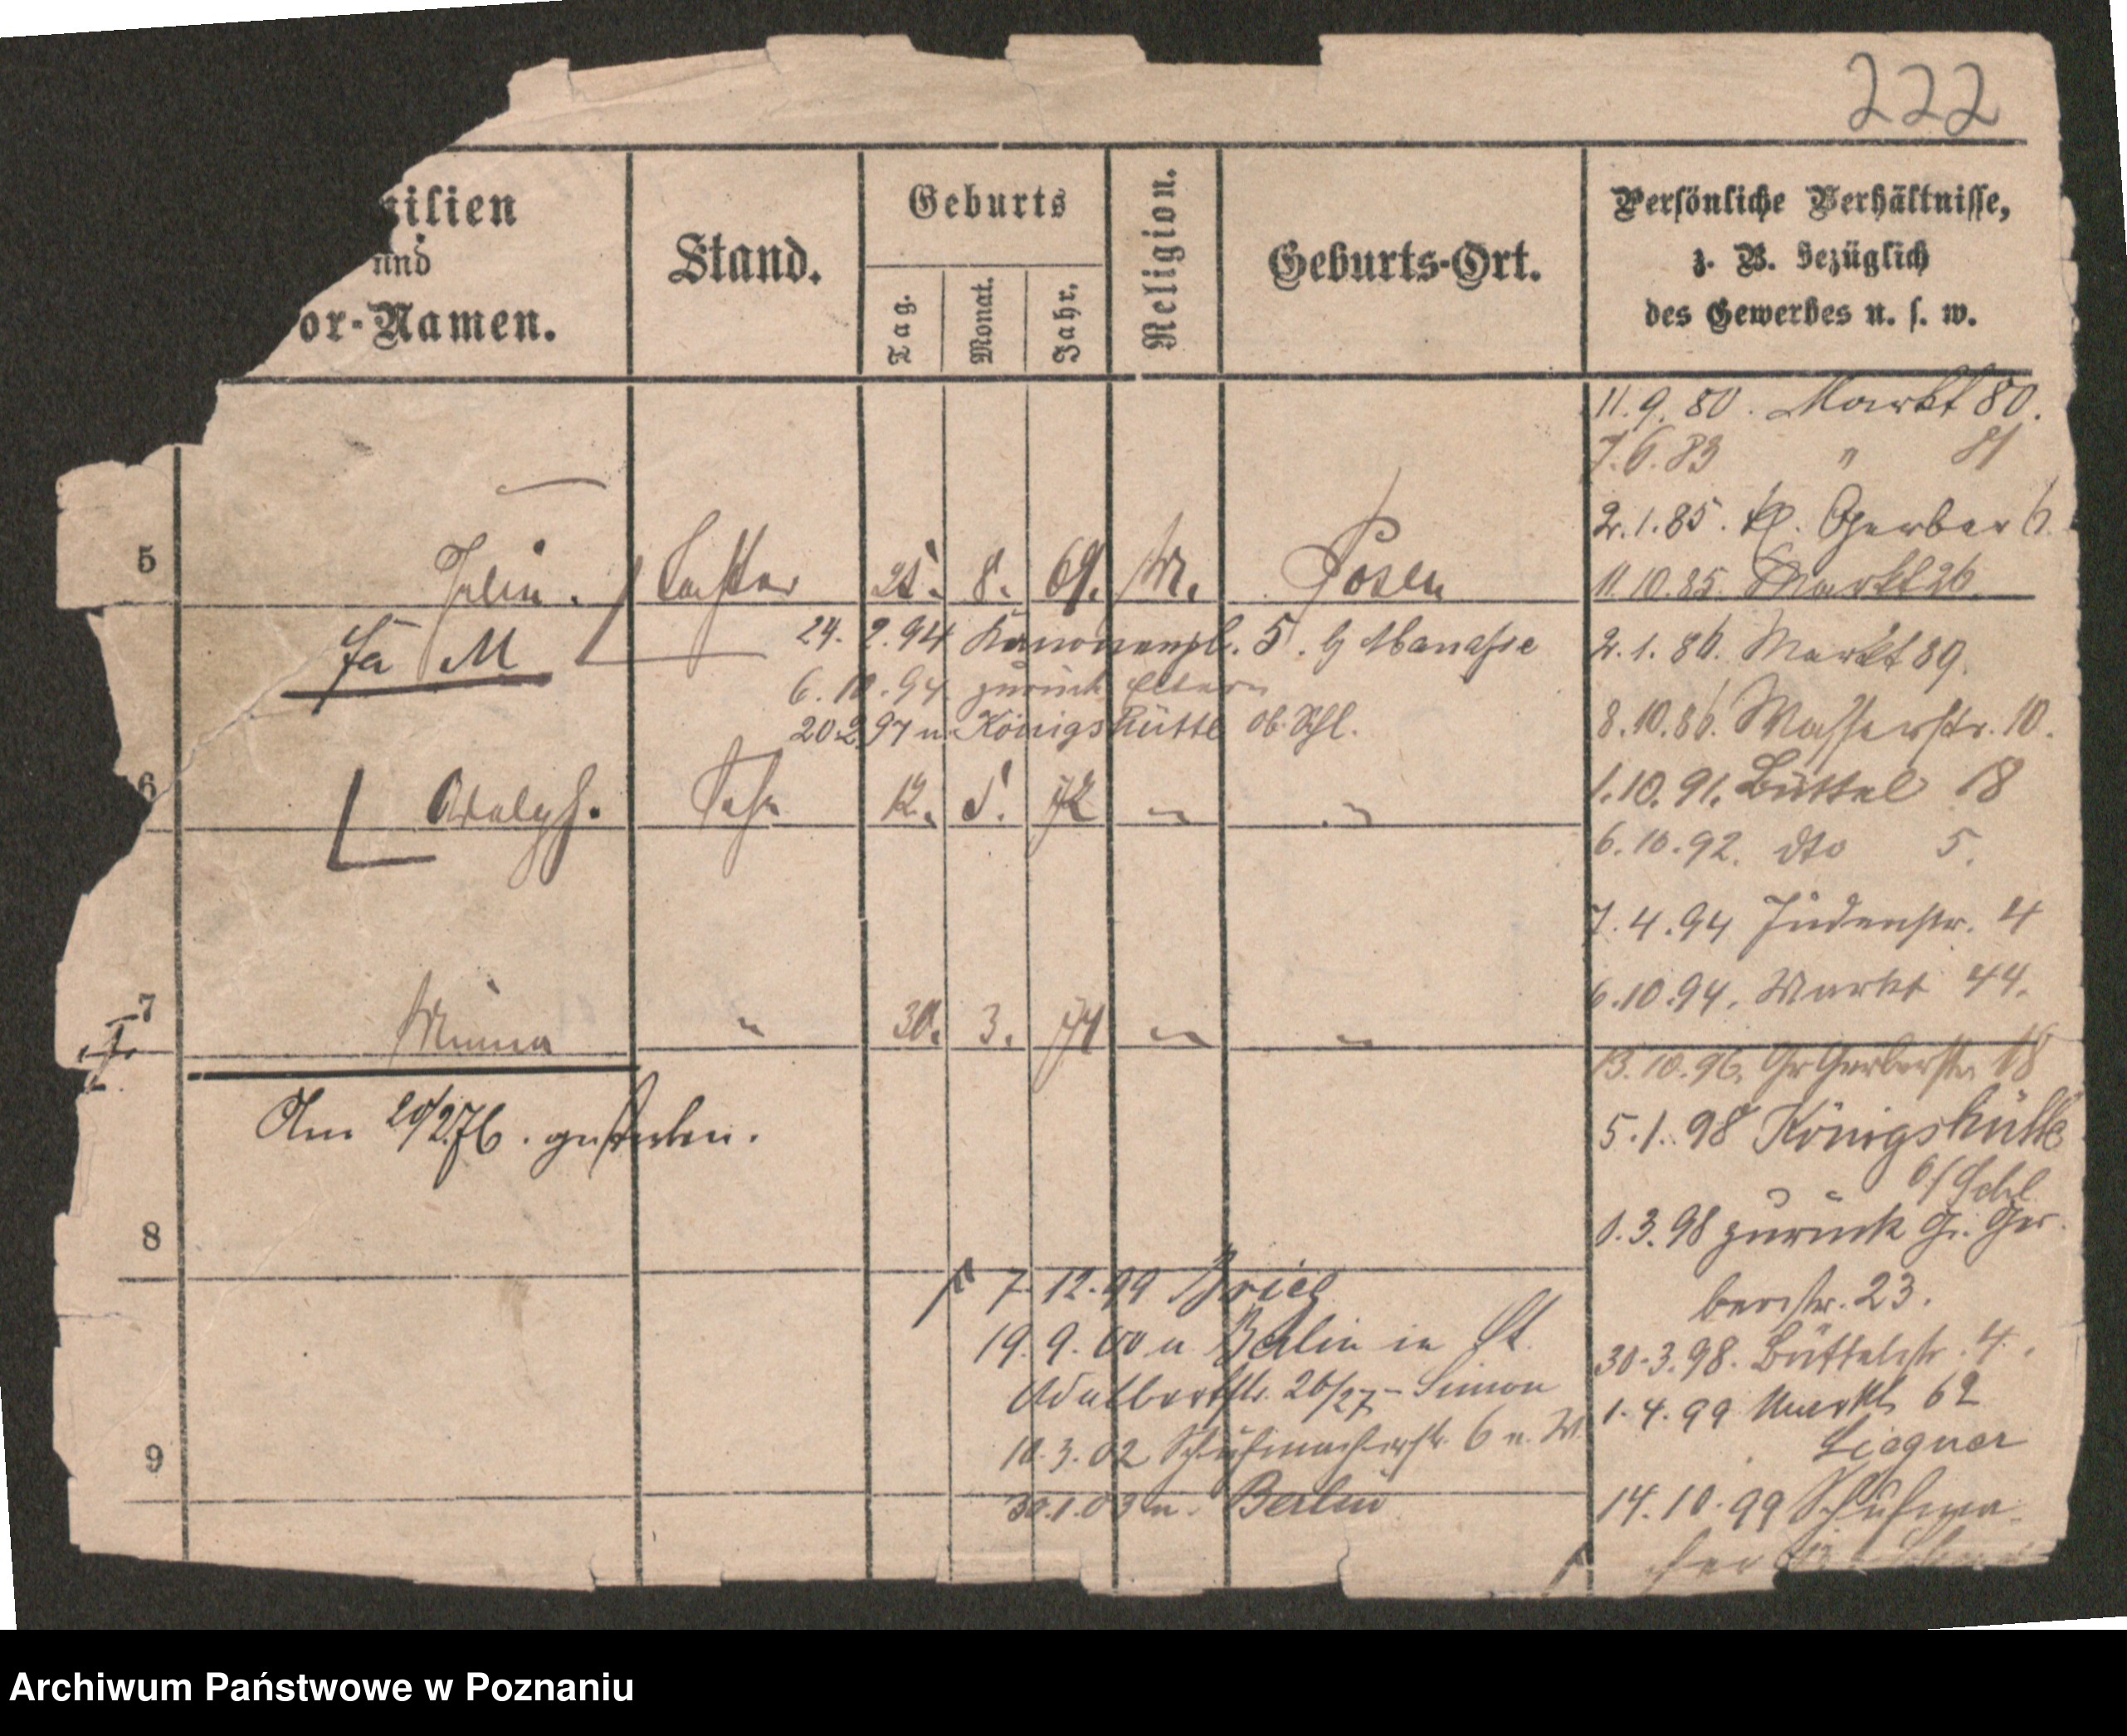 222
milien
und
or-Namen.
Stand.
Geburts
Tag.
Monat.
Jahr.
Religion.
Geburts-Ort.
Persönliche Verhältnisse,
z. B. bezüglich
des Gewerbes u. s. w.
11.9.80. Markt 80.
7.6.83 " 81
2.1.85. Kl. Gerber 6.
11.10.85. Markt 26.
5 Tochter 8. 69. M. Posen
24.2.94 Kanonenpl. 5. b Manasse
6.10.94 zurück Eltern
20.2.97 n. Königshütte Ob. Schl.
2.1.86. Markt 89.
8.10.86. Wasserstr. 10.
1.10.91. Büttel 18
6.10.92. dto 5.
7.4.94 Judenstr. 4
6.10.94. Markt 44.
6 Adolph. Sohn 12. 5. 72 " "
7 Minna " 30. 3. 74 " "
Am gestorben.
13.10.96. Gr Gerberstr. 18
5.1.98 Königshütte
o/Schl
1.3.98 zurück Gr. Ger-
berstr. 23.
30.3.98. Büttelstr. 4.
1.4.99 Markt 62
14.10.99 Schuhma-
cher
8
7.12.99 Brieg
19.9.00 n Berlin in St.
Adalbertstr. 26/27 - Simon
10.3.02 Schuhmacherstr. 6 n. W.
30.1.03 n. Berlin
9
Archiwum Państwowe w Poznaniu